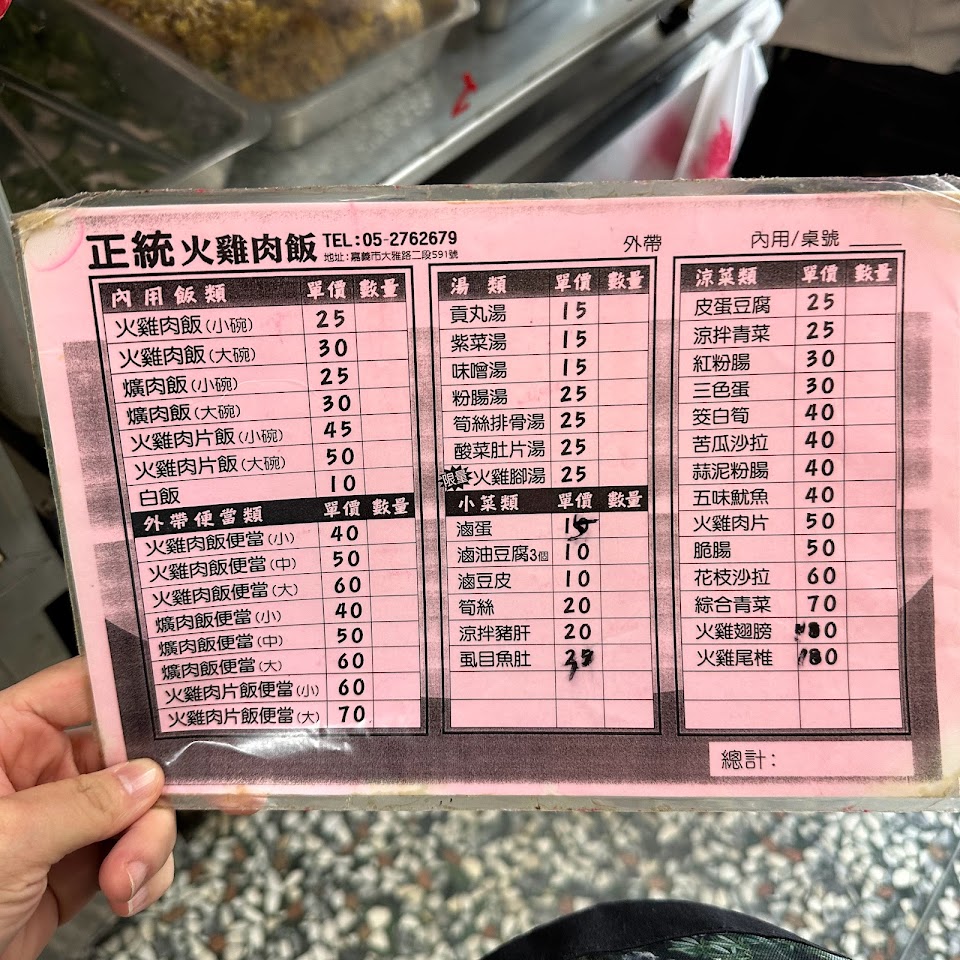 正統火雞肉飯 TEL:05-2762679
地址:嘉義市大雅路二段591號
外帶
內用/桌號
內用飯類 單價 數量
火雞肉飯(小碗) 25
火雞肉飯(大碗) 30
爌肉飯(小碗) 25
爌肉飯(大碗) 30
火雞肉片飯(小碗) 45
火雞肉片飯(大碗) 50
白飯 10
外帶便當類 單價 數量
火雞肉飯便當(小) 40
火雞肉飯便當(中) 50
火雞肉飯便當(大) 60
爌肉飯便當(小) 40
爌肉飯便當(中) 50
爌肉飯便當(大) 60
火雞肉片飯便當(小) 60
火雞肉片飯便當(大) 70
湯類 單價 數量
貢丸湯 15
紫菜湯 15
味噌湯 15
粉腸湯 25
筍絲排骨湯 25
酸菜肚片湯 25
限量 火雞腳湯 25
小菜類 單價 數量
滷蛋
滷油豆腐3個 10
滷豆皮 10
筍絲 20
涼拌豬肝 20
虱目魚肚
涼菜類 單價 數量
皮蛋豆腐 25
涼拌青菜 25
紅粉腸 30
三色蛋 30
筊白筍 40
苦瓜沙拉 40
蒜泥粉腸 40
五味魷魚 40
火雞肉片 50
脆腸 50
花枝沙拉 60
綜合青菜 70
火雞翅膀
火雞尾椎
總計: